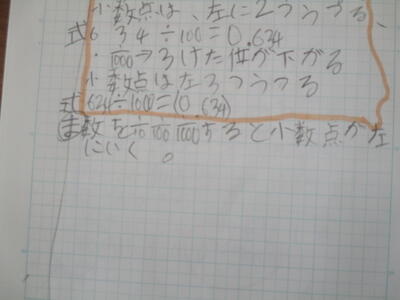 小数点は、左に2つうつる、
式6 3 4 ÷100=0.634
・1/1000→3けた位が下がる
小数点は左3つうつる
式634÷1000=(0.634)
ま数を1/10 1/100 1/1000すると小数点が左
にいく。